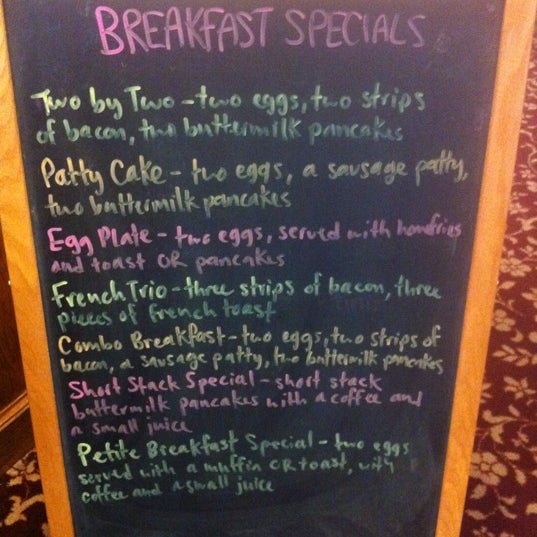 BREAKFAST SPECIALS
Two by Two - two eggs, two strips
of bacon, two buttermilk pancakes
Patty Cake - two eggs, a sausage patty,
two buttermilk pancakes
Egg Plate - two eggs, served with homefries
and toast OR pancakes
French Trio - three strips of bacon, three
pieces of french toast
Combo Breakfast - two eggs, two strips of
bacon, a sausage patty, two buttermilk pancakes
Short Stack Special - short stack
buttermilk pancakes with a coffee and
a small juice
Petite Breakfast Special - two eggs
served with a muffin OR toast, with
coffee and a small juice